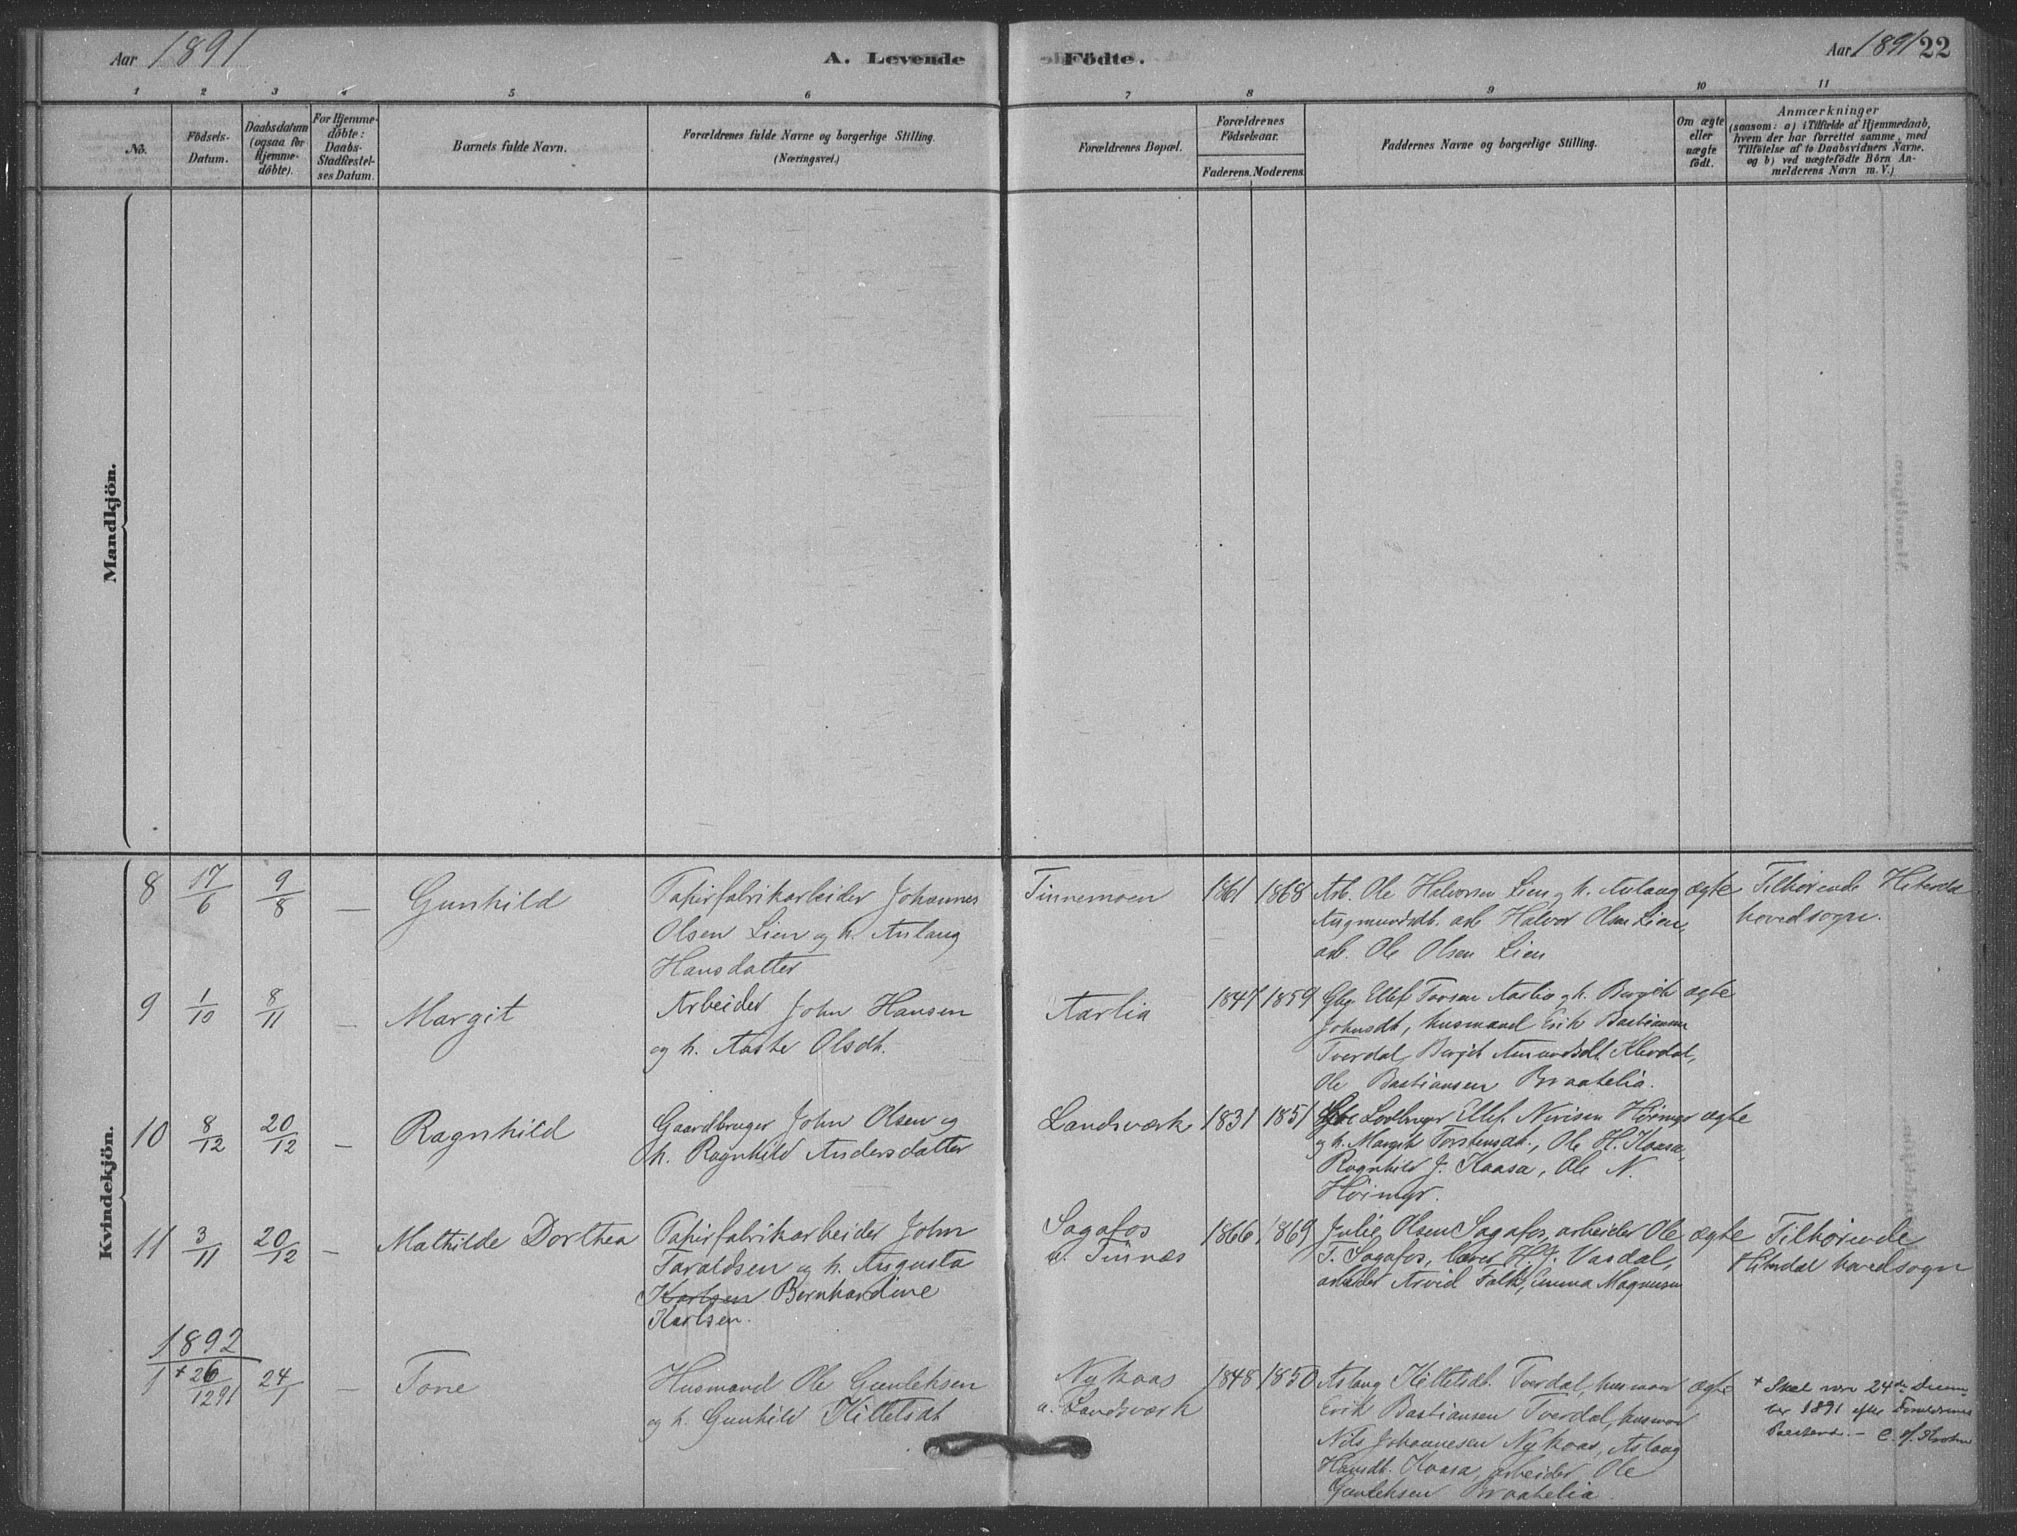 Aar 1891
A. Levende Födte.
Aar 1891 22
1 2 3 4 5 6 7 8 9 10 11
No.
Födsels-
Datum.
Daabsdatum
(ogsaa for
Hjemme-
döbte).
For Hjemme-
döbte:
Daabs-
Stadfæstel-
ses Datum.
Barnets fulde Navn.
Forældrenes fulde Navne og borgerlige Stilling.
(Næringsvei.)
Forældrenes Bopæl.
Forældrenes
Födselsaar.
Faderens. Moderens.
Faddernes Navne og borgerlige Stilling.
Om ægte
eller
uægte
födt.
Anmærkninger
(saasom: a) i Tilfælde af Hjemmedaab,
hvem der har forrettet samme, med
Tilföielse af to Daabsvidners Navne.
og b) ved uægtefödte Börn An-
melderens Navn m. V.)
Mandkjön.
Kvindekjön.
8 17/6 9/8 — Gunhild
Papirfabrikarbeider Johannes
Olsen Lien og h. Aslaug
Hansdatter
Tinnemoen 1861 1868
Arb. Ole Halvorsen Lien og h. Aslaug
Augmundsdt. arb Halvor Olsen Lien,
arb. Ole Olsen Lien
ægte
Tilhørende Hiterdal
hovedsogn.
9 1/10 8/11 — Margit
Arbeider John Hansen
og h. Aaste Olsdt.
Aarlia 1847 1859
Gbr. Ellef Torsen Aarlia og h. Bergit
Johnsdt, husmand Erik Bastiansen
Tverdal, Bergit Amundsdt
Ole Bastiansen Braatelia.
ægte
10 8/12 20/12 — Ragnhild
Gaardbruger John Olsen og
h. Ragnhild Andersdatter
Landsværk 1831 1851
Ellef Nirisen Höimyr
og h. Margit Torstensdt., Ole H. Kaasa,
Ragnhild J. Kaasa, Ole N.
Höimyr.
ægte
11 3/11 20/12 — Mathilde Dorthea
Papirfabrikarbeider John
Taraldsen og h. Augusta
Karlsen Bernhardine
Karlsen.
Sagafos
v. Tinnæs
1866 1869
Julie Olsen Sagafos, arbeider Ole
T. Sagafos, lærer H. Vasdal,
arbeider Arvid Falk, Emma Magnusen
ægte
Tilhörende
Hiterdal hovedsogn
1892
1 + 26/1291 24/1 — Tone
Husmand Ole Gunleksen
og h. Gunhild Kittelsdt
Nykaas
u. Landsværk
1848 1850
Aslaug Kittelsdt. Tverdal, husman
Erik Bastiansen Tverdal, husman
Nils Johannesen Nykaas, Aslaug
Hansdt. Kaasa, arbeider Ole
Gunleksen Braatelia.
ægte
+ Skal være 24de Decem-
ber 1891 efter Forældrenes